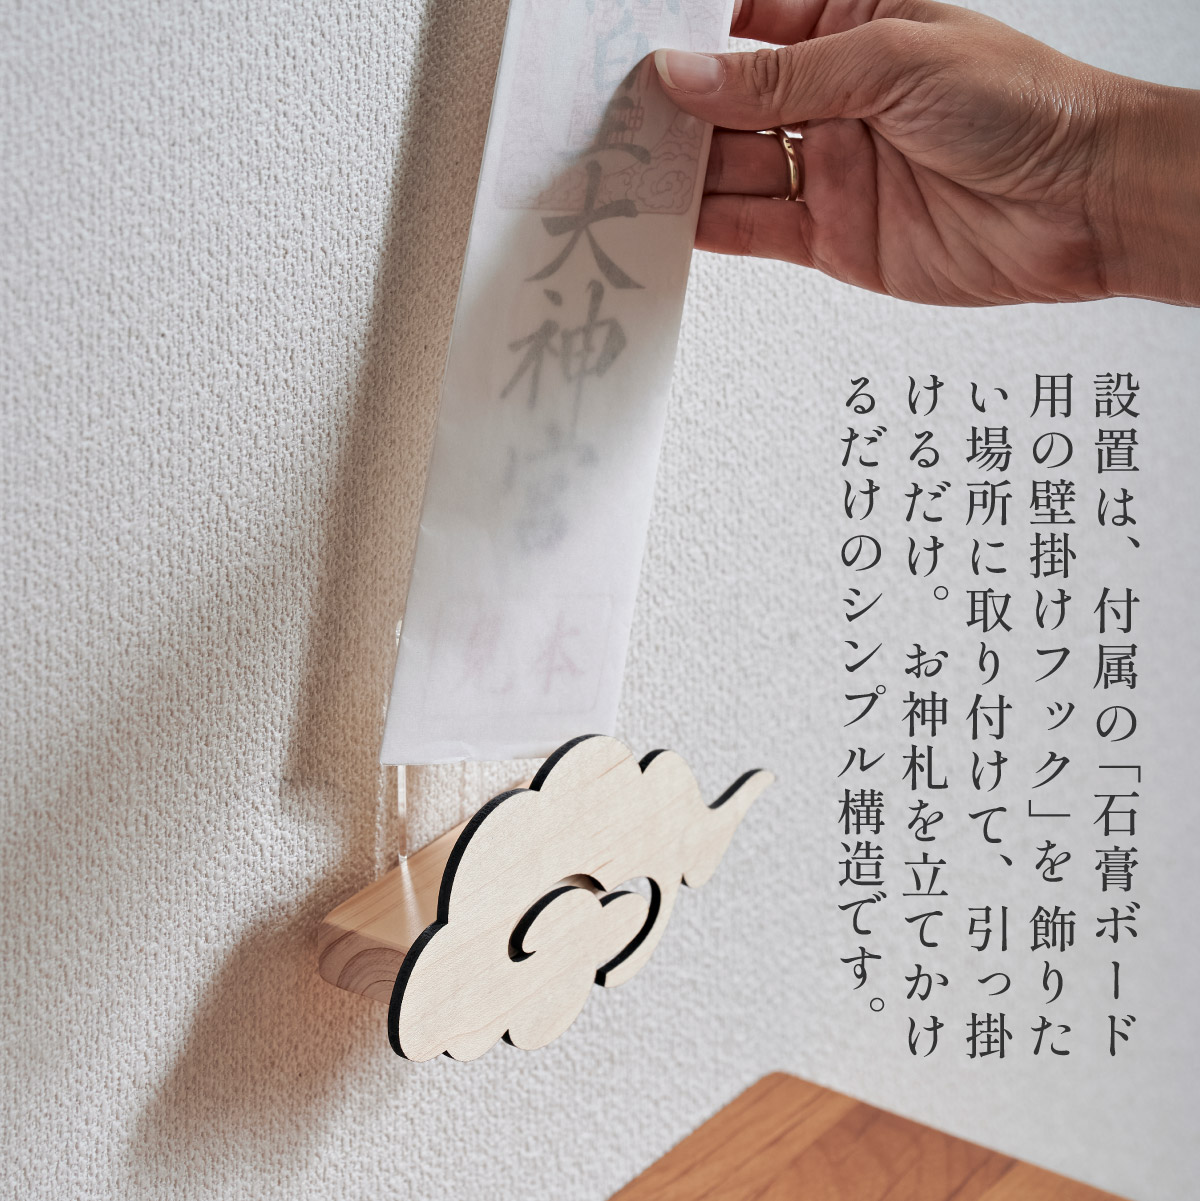 設置は、付属の「石膏ボード
用の壁掛けフック」を飾りた
い場所に取り付けて、引っ掛
けるだけ。お神札を立てかけ
るだけのシンプル構造です。
皇大神宮